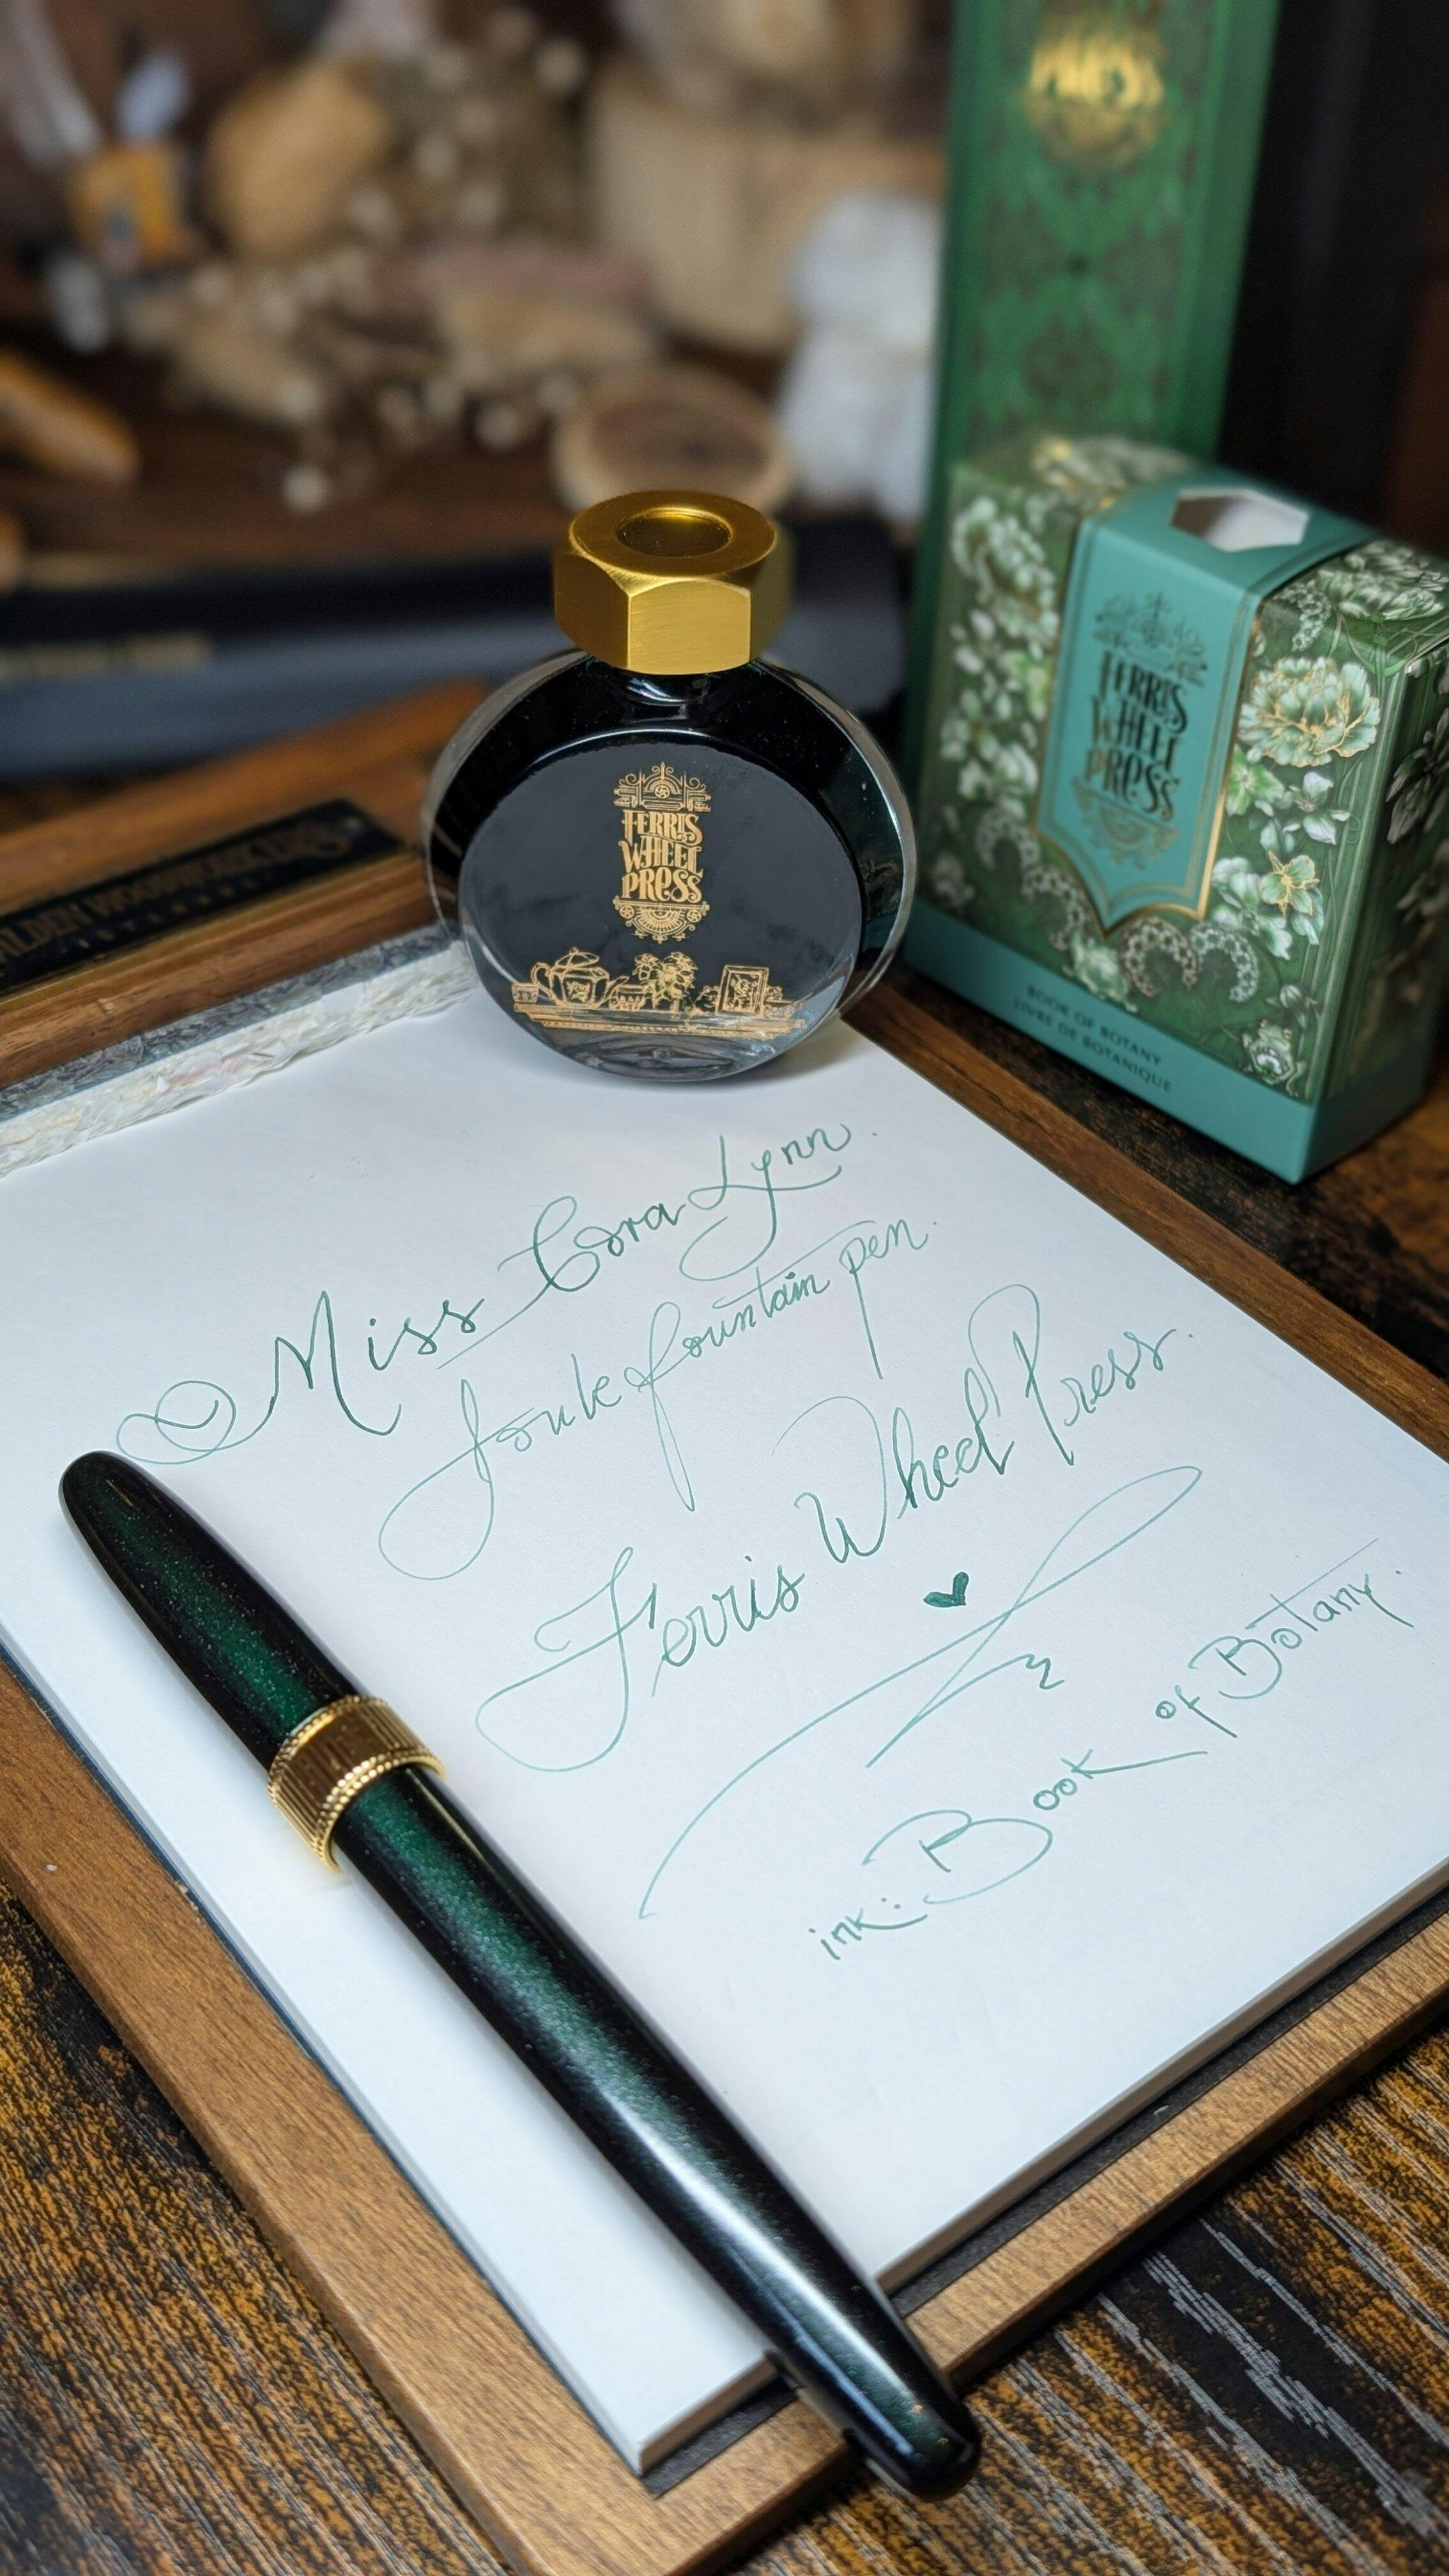 PRESS
FERRIS
WHEEL
PRESS
FERRIS
WHEEL
PRESS
BOOK OF BOTANY
LIVRE DE BOTANIQUE
Miss Cora Lynn.
fountain pen.
Ferris Wheel Press.
ink: Book of Botany.